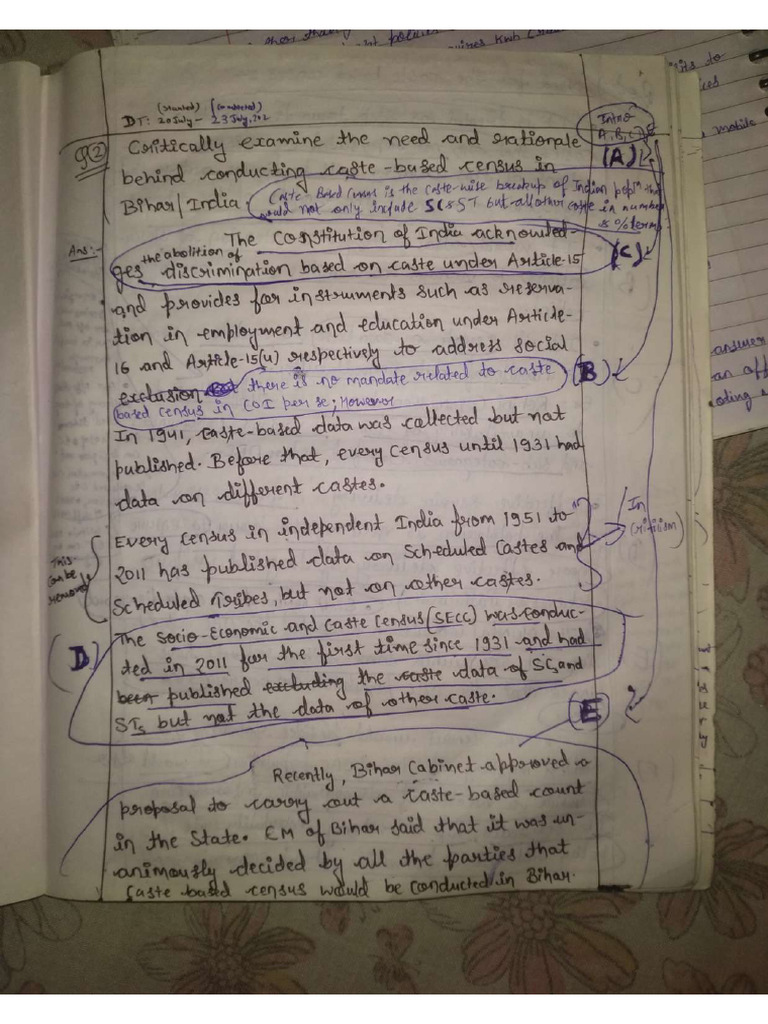 (Started) (Completed)
DT: 20 July - 23 July, 202
Intro
A, B, C, D, E
Q(2) Critically examine the need and rationale
(A)
behind conducting caste-based census in
Bihar/India.
Caste-Based Census is the caste-wise breakup of Indian popln that
would not only include SC & ST but all other caste in number
& % terms
Ans:- The Constitution of India acknowled-
ges the abolition of discrimination based on caste under Article-15
(C)
and provides for instruments such as reserva-
tion in employment and education under Article-
16 and Article-15(4) respectively to address social
exclusion there is no mandate related to caste
(B)
based census in COI per se; However
In 1941, caste-based data was collected but not
published. Before that, every census until 1931 had
data on different castes.
Every census in independent India from 1951 to
2011 has published data on Scheduled Castes and
Scheduled Tribes, but not on other castes.
This
can be
removed
In
Critilism)
(D)
The Socio-Economic and Caste Census (SECC) was conduc-
ted in 2011 for the first time since 1931 and had
been published excluding the caste data of SCs and
STs but not the data of other caste.
(E)
Recently, Bihar Cabinet approved a
proposal to carry out a caste-based count
in the State. CM of Bihar said that it was un-
animously decided by all the parties that
caste based census would be conducted in Bihar.